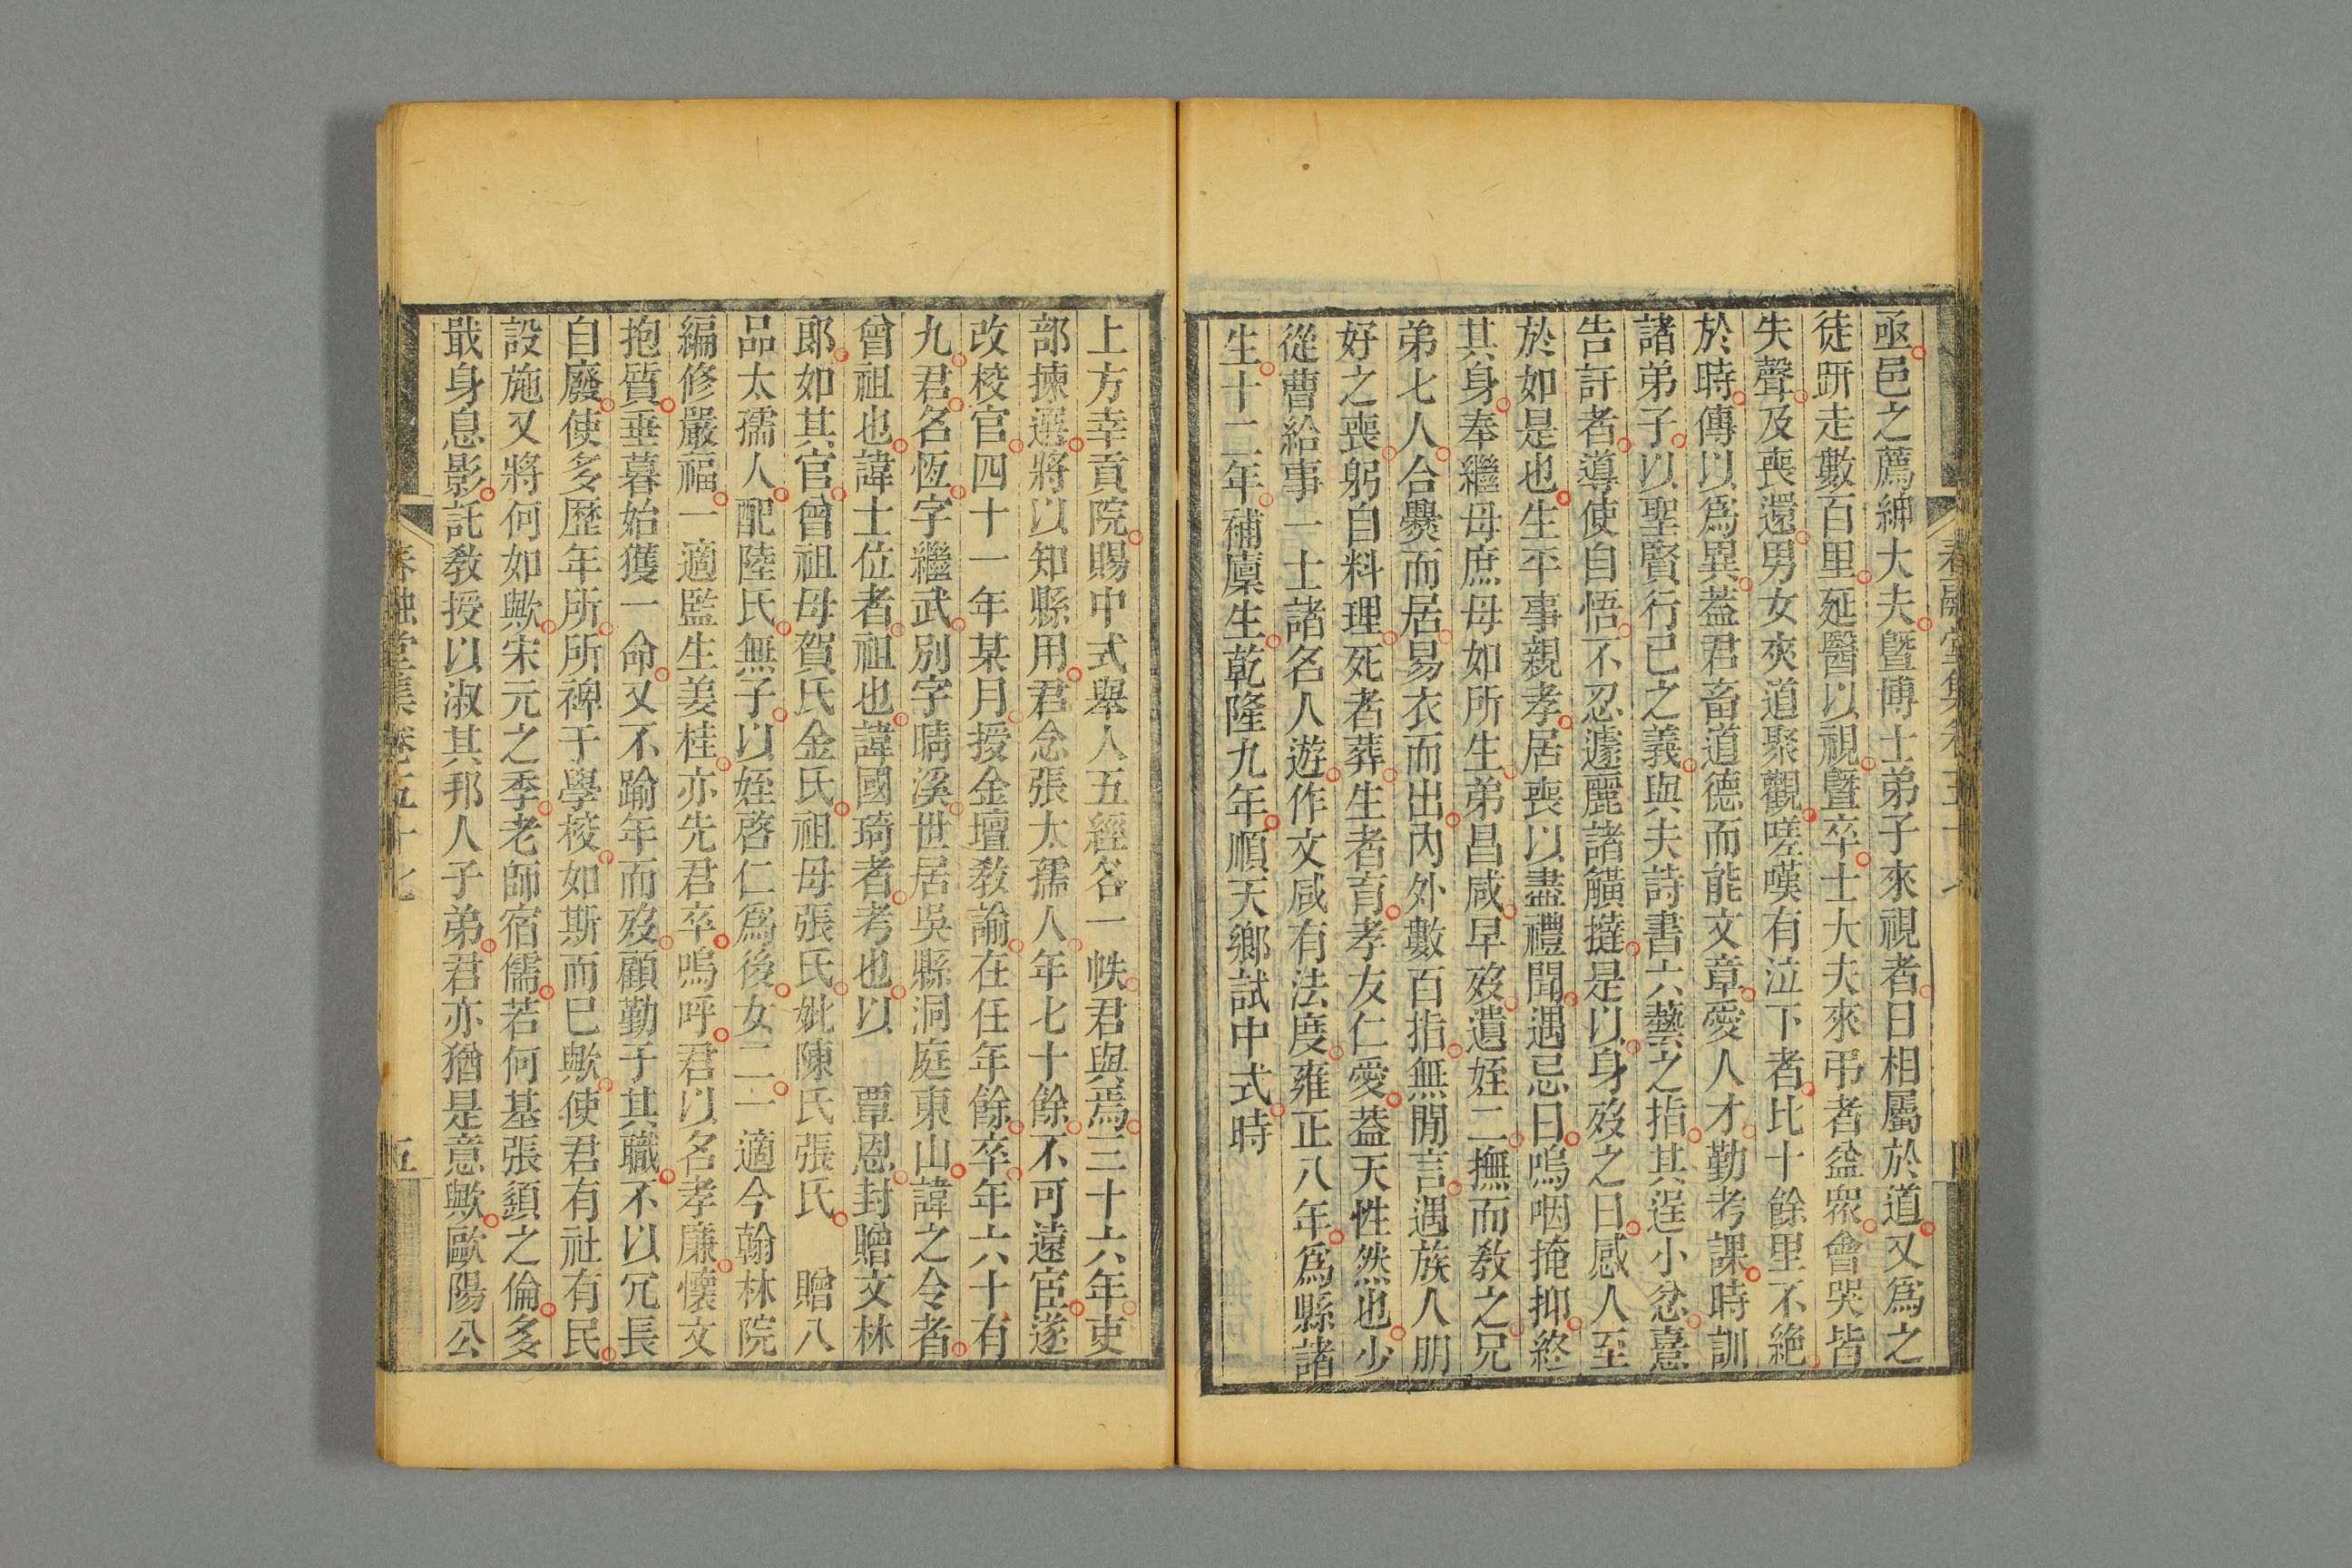 亟邑之薦紳大夫曁博士弟子來視者日相屬於道又爲之
徒跰走數百里延醫以視曁卒士大夫來弔者益衆會哭皆
失聲及喪還男女夾道聚觀嗟嘆有泣下者比十餘里不絶
於時傳以爲異葢君畜道德而能文章愛人才勤考課時訓
諸弟子以聖賢行己之義與夫詩書六藝之指其逞小忿憙
告訐者導使自悟不忍遽麗諸觵撻是以身歿之日感人至
於如是也生平事親孝居喪以盡禮聞遇忌日嗚咽掩抑終
其身奉繼母庶母如所生弟昌咸早歿遺姪二撫而敎之兄
弟七人合爨而居易衣而出內外數百指無閒言遇族人朋
好之喪躬自料理死者葬生者育孝友仁愛葢天性然也少
從曹給事一士諸名人遊作文咸有法度雍正八年爲縣諸
生十二年補廩生乾隆九年順天鄉試中式時
上方幸貢院賜中式舉人五經各一帙君與焉三十六年吏
部揀選將以知縣用君念張太孺人年七十餘不可遠宦遂
改校官四十一年某月授金壇敎諭在任年餘卒年六十有
九君名恆字繼武別字晴溪世居吳縣洞庭東山諱之令者
曾祖也諱士位者祖也諱國琦者考也以　覃恩封贈文林
郎如其官曾祖母賀氏金氏祖母張氏妣陳氏張氏　贈八
品太孺人配陸氏無子以姪啓仁爲後女二一適今翰林院
編修嚴福一適監生姜桂亦先君卒嗚呼君以名孝廉懷文
抱質垂暮始獲一命又不踰年而歿顧勤于其職不以冗長
自廢使多歷年所所裨于學校如斯而已歟使君有社有民
設施又將何如歟宋元之季老師宿儒若何基張䇓之倫多
戢身息影託敎授以淑其邦人子弟君亦猶是意歟歐陽公
春融堂集卷五十七
五